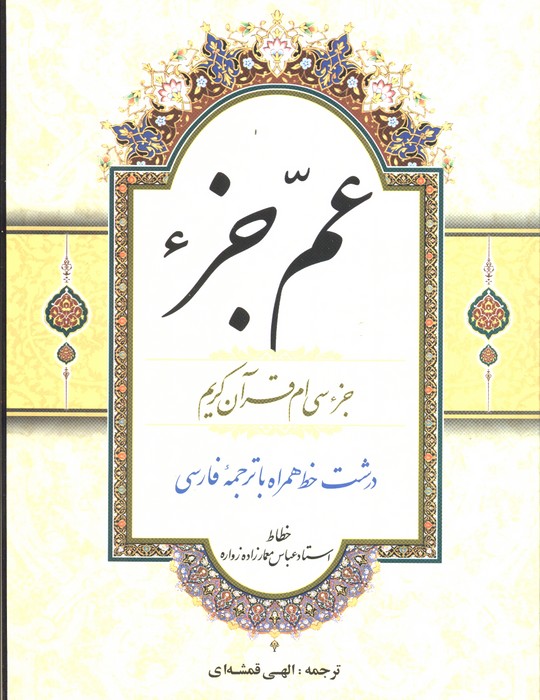 عمّ جزء
جزء سی ام قرآن کریم
درشت خط همراه با ترجمهٔ فارسی
خطاط
استاد عباس معمارزاده زواره
ترجمه : الهی قمشه‌ای